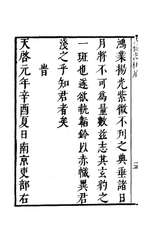 鴻業揚光紫微不刊之典垂諸日
月將不可爲量數兹志其玄豹之
一班也遂欲執鞱鈐以赤幟異君
淺之乎知君者矣
旹
天啓元年辛酉夏日南京吏部右